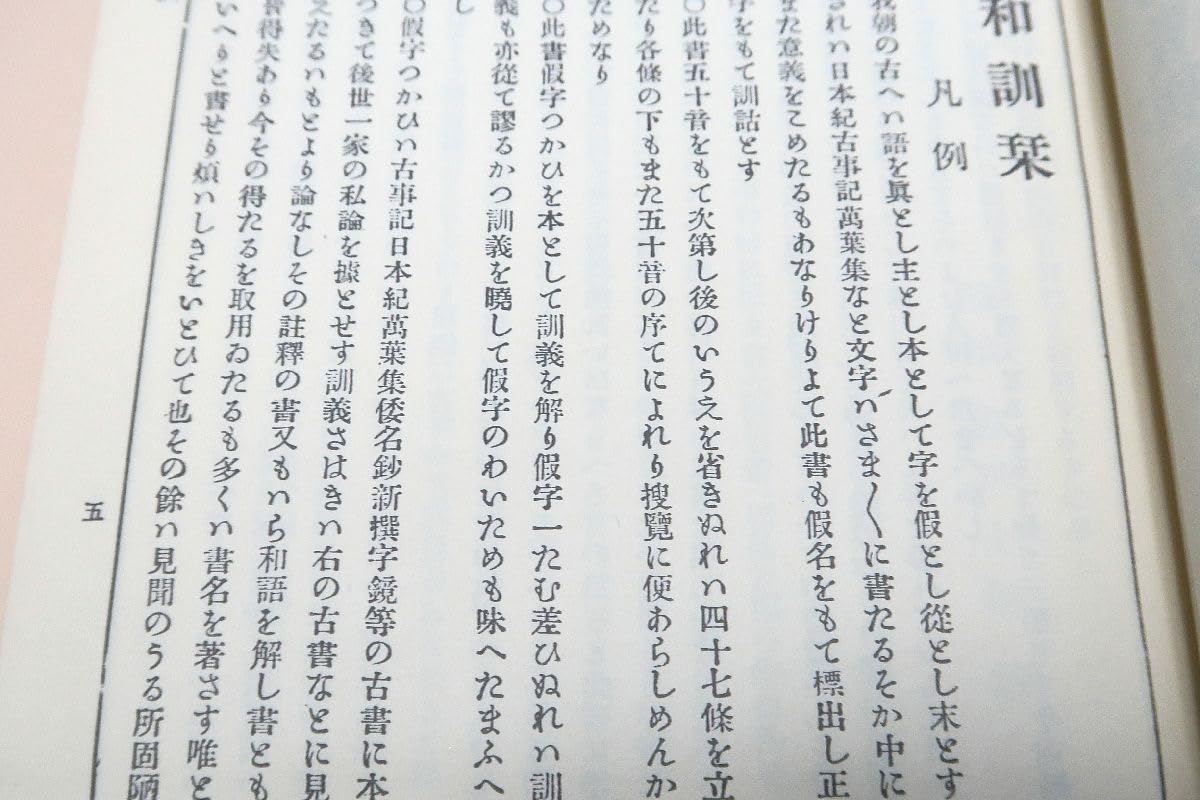 和訓栞
凡例
我朝の古へハ語を眞とし主とし本として字を假とし從とし末とす
されハ日本紀古事記萬葉集なと文字ハさま〱に書たるそか中に
また意義をこめたるもあなりけりよて此書も假名をもて標出し正
字をもて訓詁とす
〇此書五十音をもて次第し後のいうえを省きぬれハ四十七條を立
たり各條の下もまた五十音の序てによれり搜覽に便あらしめんか
ためなり
〇此書假字つかひを本として訓義を解り假字一たむ差ひぬれハ訓
義も亦從て謬るかつ訓義を曉して假字のわいためも味へたまふへ
し
〇假字つかひハ古事記日本紀萬葉集倭名鈔新撰字鏡等の古書に本
つきて後世一家の私論を據とせす訓義さはきハ右の古書なとに見
えたるハもとより論なしその註釋の書又もハら和語を解し書とも
皆得失あり今その得たるを取用ゐたるも多くハ書名を著さす唯と
いへりと書せり煩ハしきをいとひて也その餘ハ見聞のうる所固陋
五